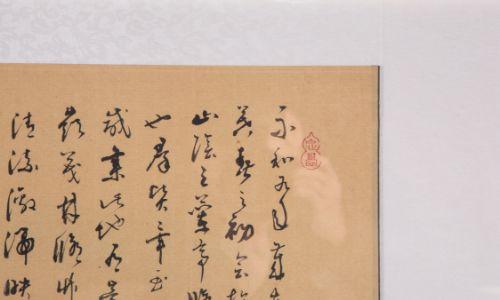 永和九年歲在
暮春之初會於
山陰之蘭亭脩
也群賢畢至
咸集此地有崇
嶺茂林脩竹
清流激湍映